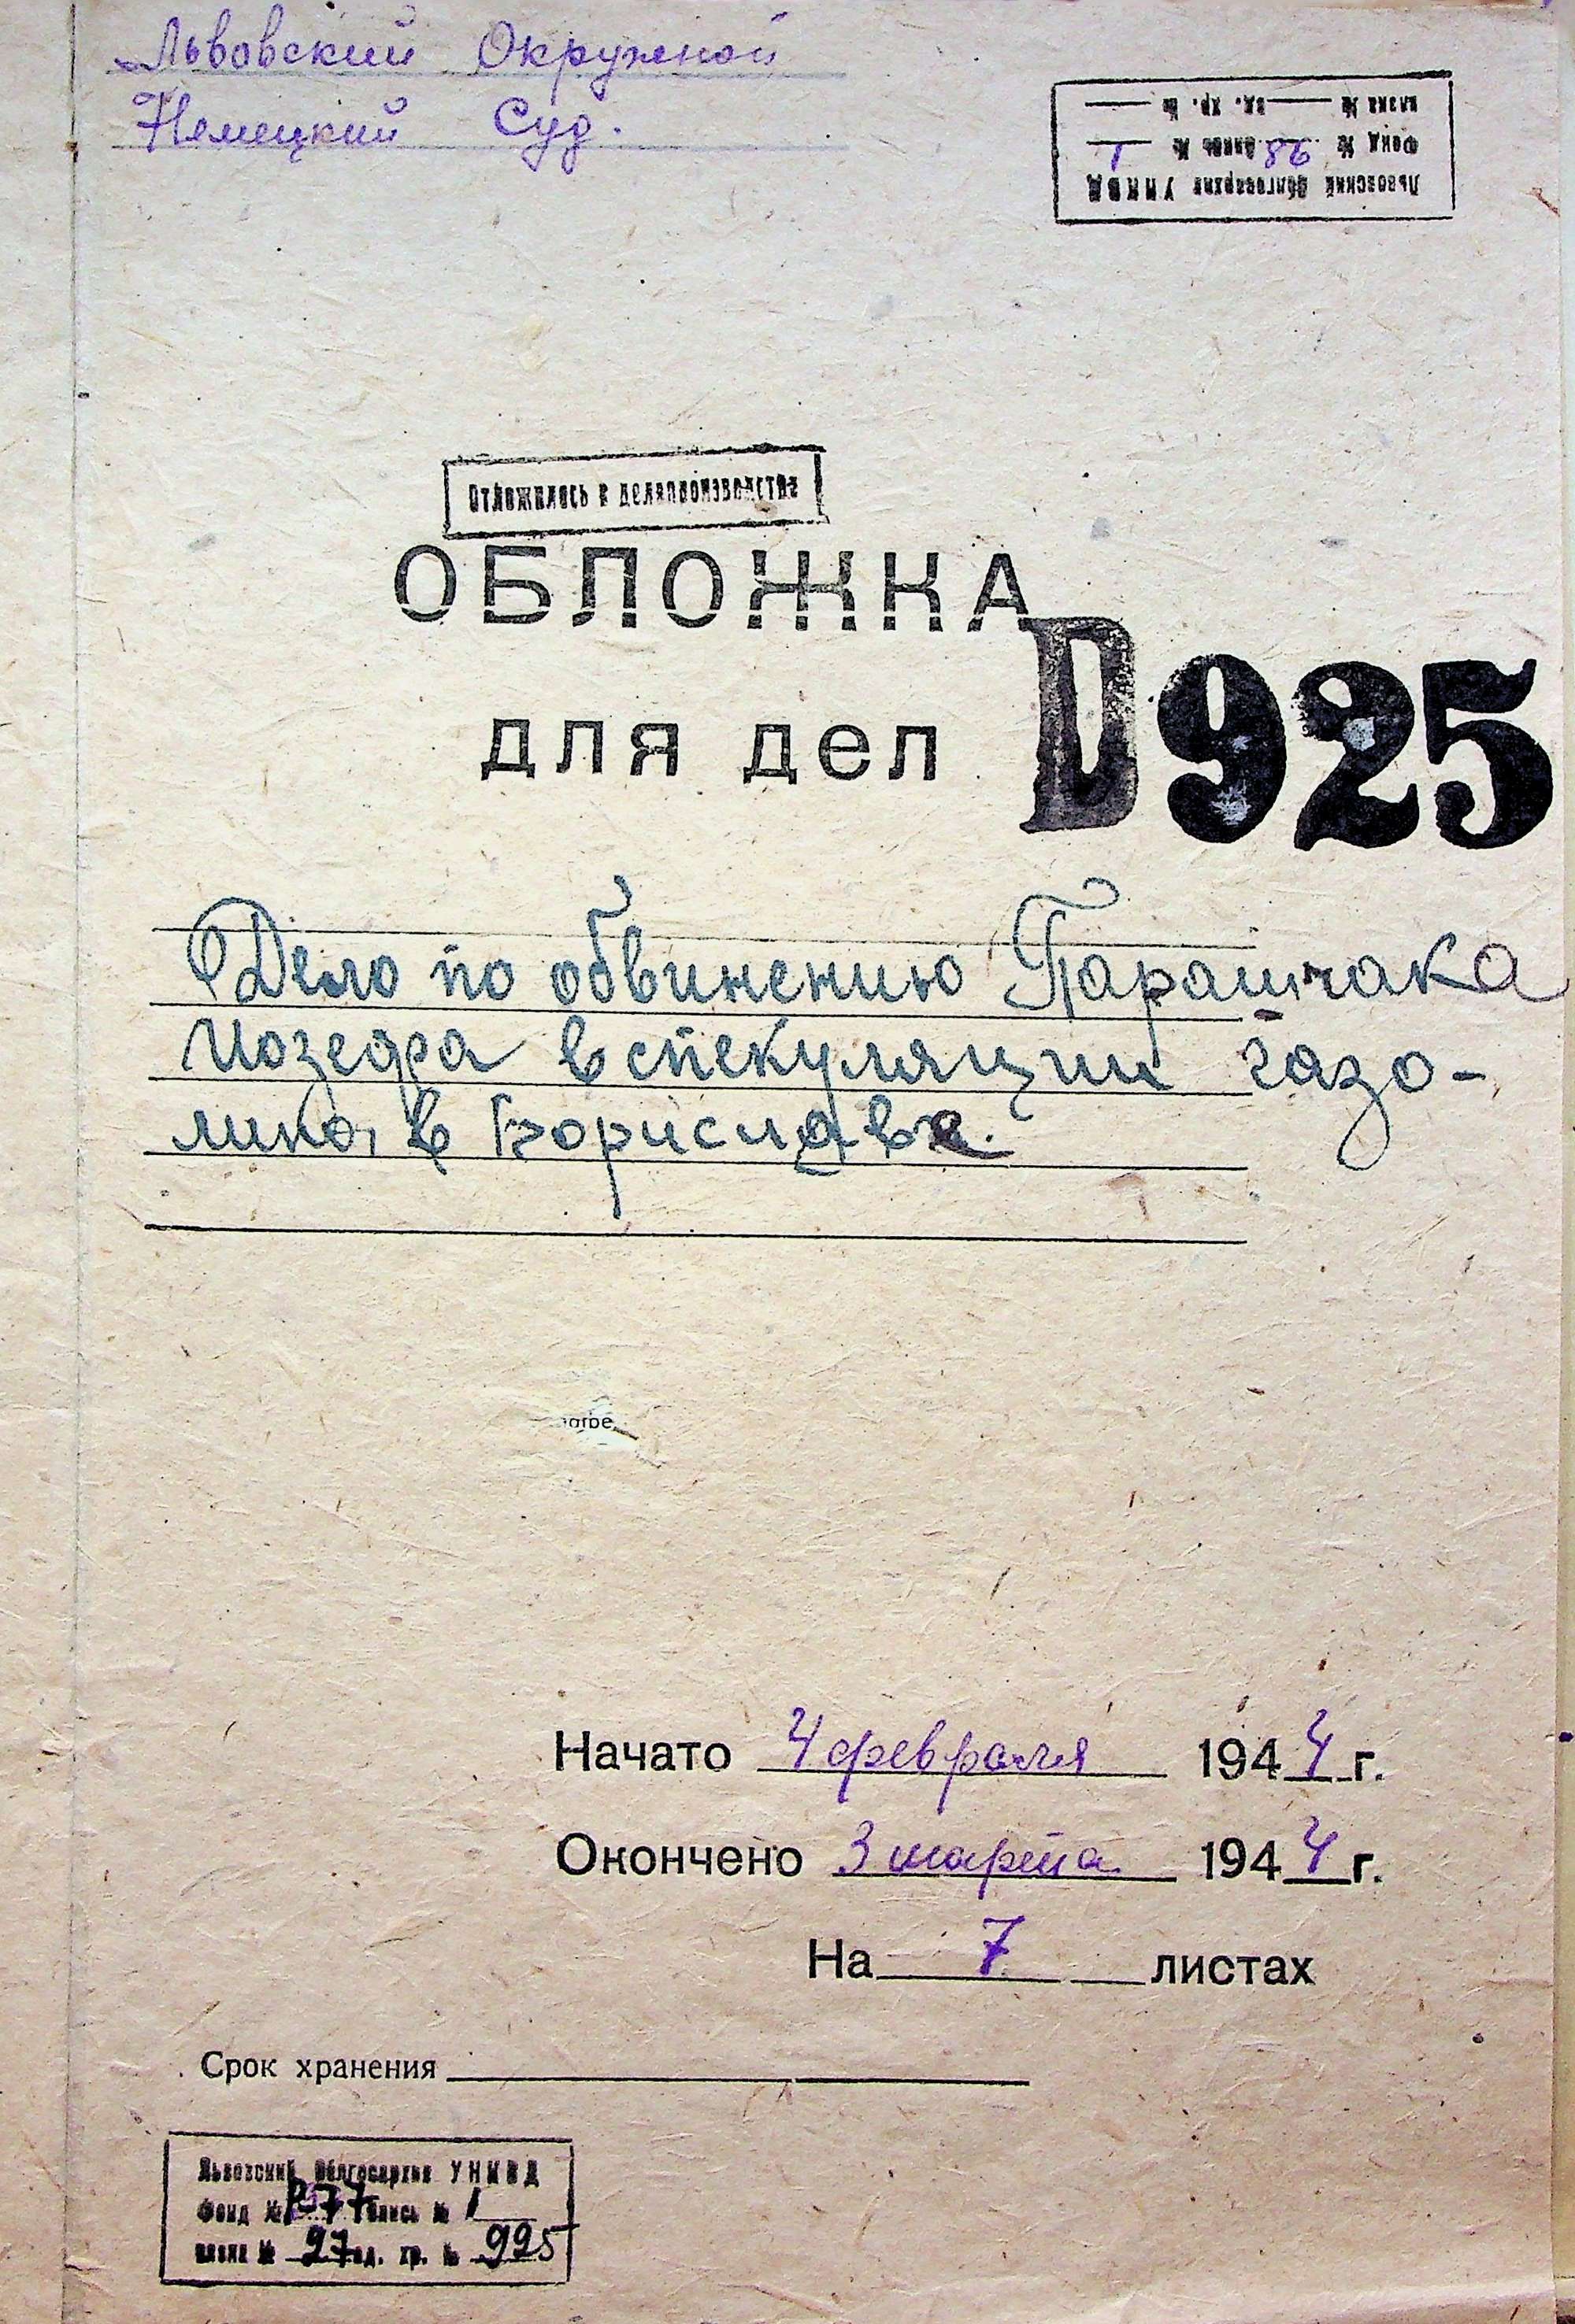 Львовский Окружной
Немецкий Суд.
Львовский Облгосархив УНКВД
Фонд № 86 опись № 1
вязка № ед. хр. №
Отложилось в делопроизводстве
ОБЛОЖКА
для дел
D925
Дело по обвинению Парашчака
Иозефа в спекуляции газо-
лина, в Бориславе.
Начато 4 февраля 1944 г.
Окончено 3 марта 1944 г.
На 7 листах
Срок хранения
Львовский Облгосархив УНКВД
Фонд № Р77 опись № 1
вязка № 27 ед. хр. № 925